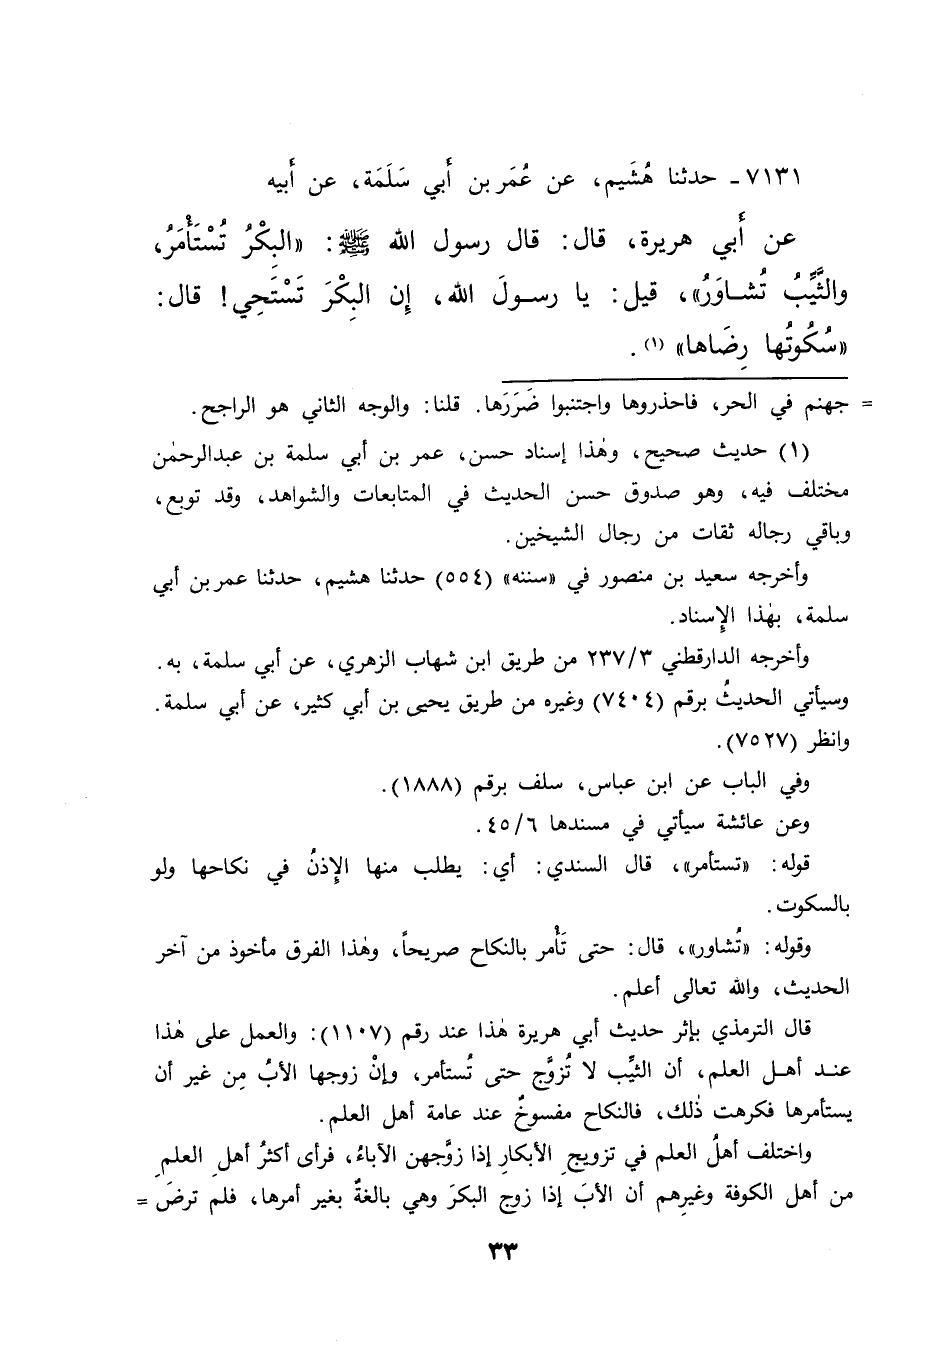 ٧١٣١ - حدثنا هُشَيم، عن عُمَر بن أَبي سَلَمَة، عن أَبيه
عن أَبي هريرة، قال: قال رسول الله ﷺ: «البِكْرُ تُسْتَأْمَرُ،
والثَّيِّبُ تُشـاوَرُ»، قيل: يا رسـولَ الله، إِن البِكْرَ تَسْتَحِي! قال:
«سُكُوتُها رِضَاها» (١) .
= جهنم في الحر، فاحذروها واجتنبوا ضَرَرَها. قلنا: والوجه الثاني هو الراجح.
(١) حديث صحيح، وهٰذا إسناد حسن، عمر بن أبي سلمة بن عبدالرحمٰن
مختلف فيه، وهو صدوق حسن الحديث في المتابعات والشواهد، وقد توبع،
وباقي رجاله ثقات من رجال الشيخين.
وأخرجه سعيد بن منصور في «سننه» (٥٥٤) حدثنا هشيم، حدثنا عمر بن أبي
سلمة، بهٰذا الإِسناد.
وأخرجه الدارقطني ٢٣٧/٣ من طريق ابن شهاب الزهري، عن أبي سلمة، به.
وسيأتي الحديثُ برقم (٧٤٠٤) وغيره من طريق يحيى بن أبي كثير، عن أبي سلمة.
وانظر (٧٥٢٧).
وفي الباب عن ابن عباس، سلف برقم (١٨٨٨).
وعن عائشة سيأتي في مسندها ٤٥/٦.
قوله: «تستأمر»، قال السندي: أي: يطلب منها الإِذنُ في نكاحها ولو
بالسكوت.
وقوله: «تُشاور»، قال: حتى تَأْمر بالنكاح صريحاً، وهٰذا الفرق مأخوذ من آخر
الحديث، والله تعالى أعلم.
قال الترمذي بإثر حديث أبي هريرة هٰذا عند رقم (١١٠٧): والعمل على هٰذا
عنـد أهـل العلم، أن الثيِّب لا تُزوَّج حتى تُستأمر، وإنْ زوجها الأبُ مِن غير أن
يستأمرها فكرهت ذٰلك، فالنكاح مفسوخٌ عند عامة أهل العلم.
واختلف أهلُ العلم في تزويجِ الأبكارِ إذا زوَّجهن الآباءُ، فرأى أكثرُ أهلِ العلمِ
من أهل الكوفة وغيرِهم أن الأبَ إذا زوج البكرَ وهي بالغةٌ بغير أمرها، فلم ترضَ =
٣٣